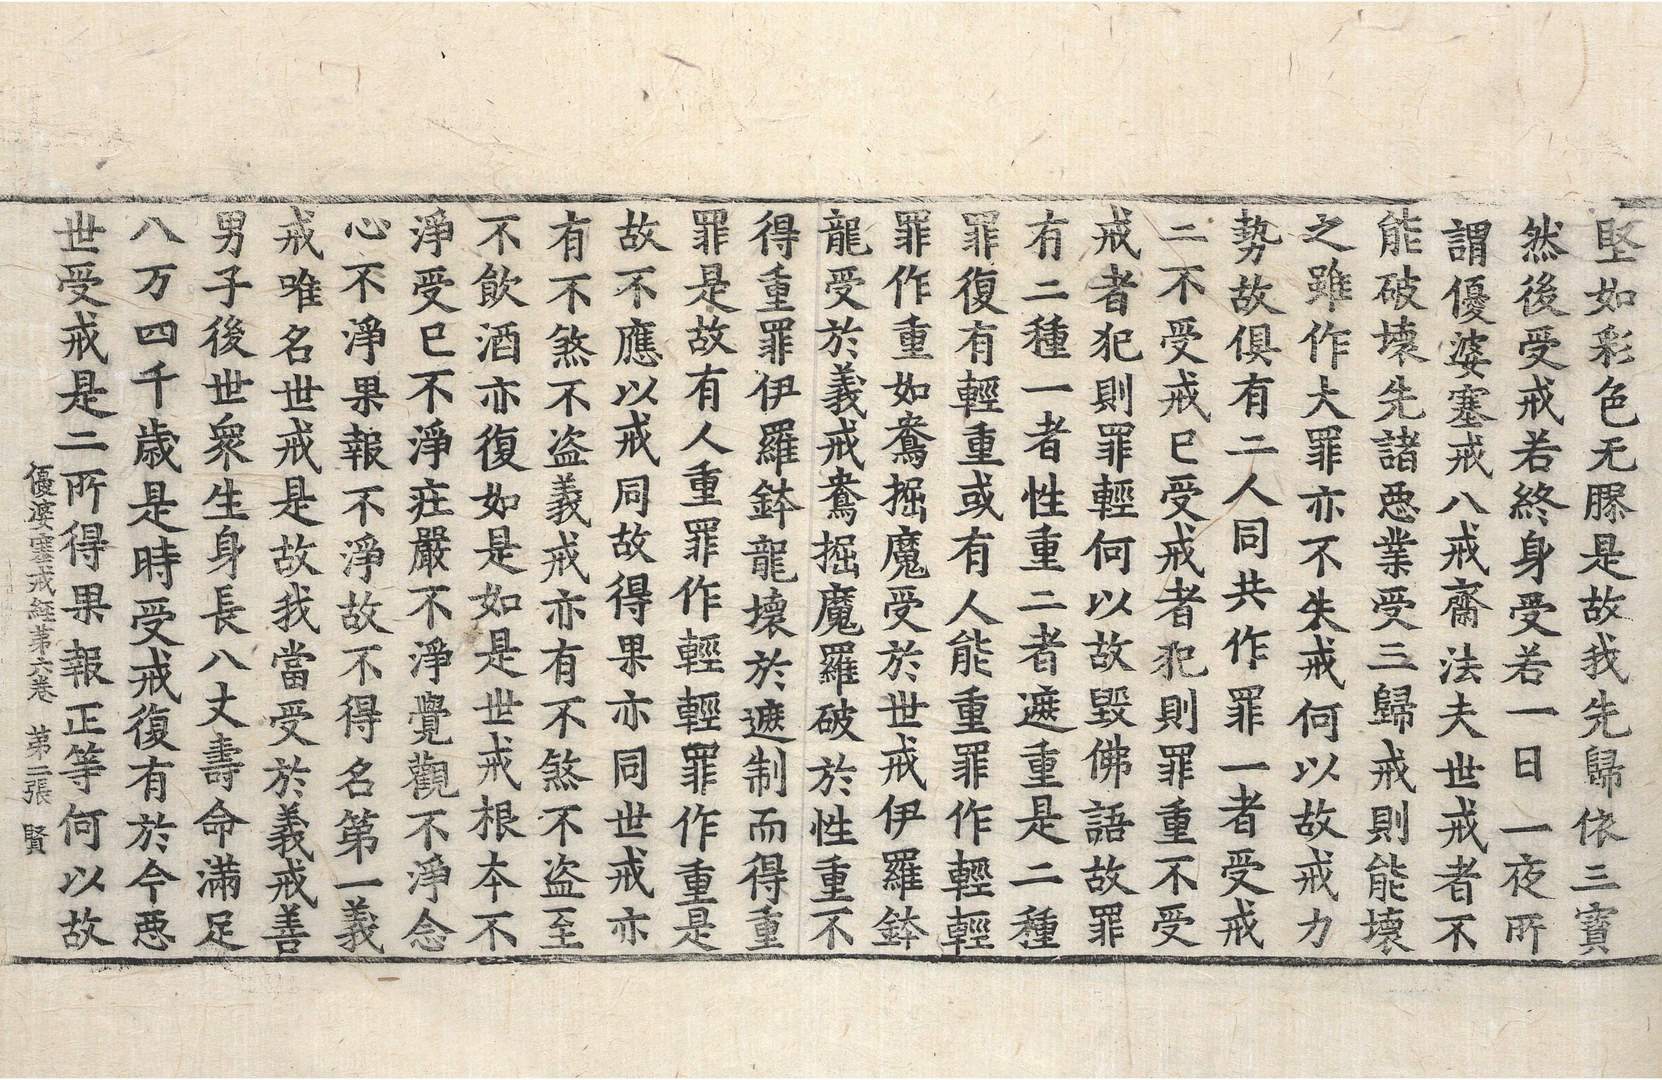 堅如彩色无膠是故我先歸依三寶
然後受戒若終身受若一日一夜所
謂優婆塞戒八戒齋法夫世戒者不
能破壞先諸惡業受三歸戒則能壞
之雖作大罪亦不失戒何以故戒力
勢故俱有二人同共作罪一者受戒
二不受戒已受戒者犯則罪重不受
戒者犯則罪輕何以故毀佛語故罪
有二種一者性重二者遮重是二種
罪復有輕重或有人能重罪作輕輕
罪作重如鴦掘魔受於世戒伊羅鉢
龍受於義戒鴦掘魔羅破於性重不
得重罪伊羅鉢龍壞於遮制而得重
罪是故有人重罪作輕輕罪作重是
故不應以戒同故得果亦同世戒亦
有不煞不盗義戒亦有不煞不盗至
不飲酒亦復如是如是世戒根本不
淨受已不淨莊嚴不淨覺觀不淨念
心不淨果報不淨故不得名第一義
戒唯名世戒是故我當受於義戒善
男子後世衆生身長八丈壽命滿足
八万四千歲是時受戒復有於今惡
世受戒是二所得果報正等何以故
優婆塞戒經第六卷　第二張　賢